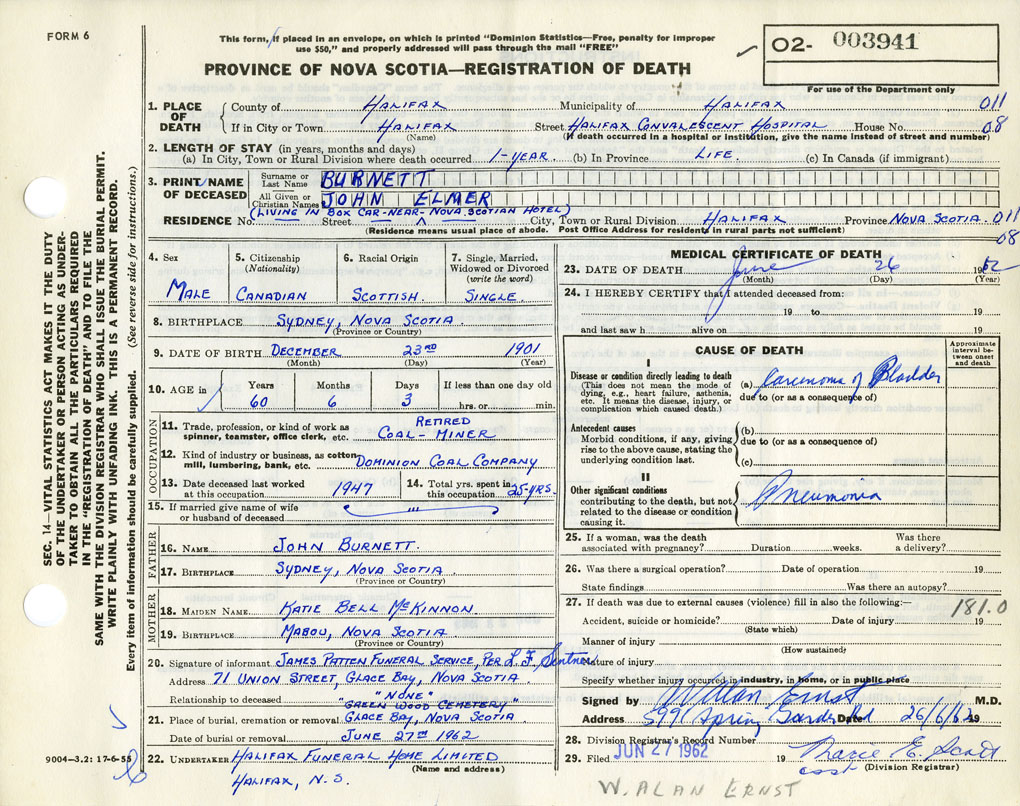 FORM 6
This form, if placed in an envelope, on which is printed "Dominion Statistics—Free, penalty for improper
use $50," and properly addressed will pass through the mail "FREE"
PROVINCE OF NOVA SCOTIA—REGISTRATION OF DEATH
02- 003941
For use of the Department only
1. PLACE OF DEATH County of HALIFAX Municipality of HALIFAX 011
If in City or Town HALIFAX Street HALIFAX CONVALESCENT HOSPITAL House No. 08
(Name) (If death occurred in a hospital or institution, give the name instead of street and number)
2. LENGTH OF STAY (in years, months and days)
(a) In City, Town or Rural Division where death occurred 1-YEAR. (b) In Province LIFE. (c) In Canada (if immigrant)
3. PRINT NAME OF DECEASED Surname or Last Name BURNETT
All Given or Christian Names JOHN ELMER
(LIVING IN BOX CAR-NEAR-NOVA SCOTIAN HOTEL)
RESIDENCE No. — Street — City, Town or Rural Division HALIFAX Province NOVA SCOTIA. 011
(Residence means usual place of abode. Post Office Address for residents in rural parts not sufficient) 08
4. Sex
MALE
5. Citizenship
(Nationality)
CANADIAN
6. Racial Origin
SCOTTISH.
7. Single, Married,
Widowed or Divorced
(write the word)
SINGLE.
8. BIRTHPLACE SYDNEY, NOVA SCOTIA.
(Province or Country)
9. DATE OF BIRTH DECEMBER 23RD 1901
(Month) (Day) (Year)
10. AGE in Years Months Days If less than one day old
60 6 3 hrs. or min.
OCCUPATION
11. Trade, profession, or kind of work as
spinner, teamster, office clerk, etc. RETIRED
COAL-MINER
12. Kind of industry or business, as cotton
mill, lumbering, bank, etc. DOMINION COAL COMPANY
13. Date deceased last worked
at this occupation 1947
14. Total yrs. spent in
this occupation 25-YRS.
15. If married give name of wife
or husband of deceased
FATHER
16. NAME JOHN BURNETT.
17. BIRTHPLACE SYDNEY, NOVA SCOTIA
(Province or Country)
MOTHER
18. MAIDEN NAME KATIE BELL McKINNON.
19. BIRTHPLACE MABOU, NOVA SCOTIA
(Province or Country)
20. Signature of informant JAMES PATTEN FUNERAL SERVICE, PER L. F.
Address 71 UNION STREET, GLACE BAY, NOVA SCOTIA
Relationship to deceased "NONE"
"GREEN WOOD CEMETERY"
21. Place of burial, cremation or removal GLACE BAY, NOVA SCOTIA
Date of burial or removal JUNE 27th 1962
22. UNDERTAKER HALIFAX FUNERAL HOME LIMITED
(Name and address)
HALIFAX, N.S.
MEDICAL CERTIFICATE OF DEATH
23. DATE OF DEATH June 26 1962
(Month) (Day) (Year)
24. I HEREBY CERTIFY that I attended deceased from:
19 to 19
and last saw h alive on 19
CAUSE OF DEATH
Approximate
interval be-
tween onset
and death
I
Disease or condition directly leading to death
(This does not mean the mode of
dying, e.g., heart failure, asthenia,
etc. It means the disease, injury, or
complication which caused death.)
(a) Carcinoma of Bladder
due to (or as a consequence of)
Antecedent causes
Morbid conditions, if any, giving
rise to the above cause, stating the
underlying condition last.
(b)
due to (or as a consequence of)
(c)
II
Other significant conditions
contributing to the death, but not
related to the disease or condition
causing it.
Pneumonia
25. If a woman, was the death
associated with pregnancy? Duration weeks. Was there
a delivery?
26. Was there a surgical operation? Date of operation 19
State findings Was there an autopsy?
27. If death was due to external causes (violence) fill in also the following:— 181.0
Accident, suicide or homicide? Date of injury 19
(State which)
Manner of injury
(How sustained)
Nature of injury
Specify whether injury occurred in industry, in home, or in public place
Signed by W Alan Ernst M.D.
Address 5991 Spring Garden Rd Dated 26/6/62 19
28. Division Registrar's Record Number
29. Filed JUN 27 1962 19 E. Scott
(Division Registrar)
W. ALAN ERNST
SEC. 14—VITAL STATISTICS ACT MAKES IT THE DUTY
OF THE UNDERTAKER OR PERSON ACTING AS UNDER-
TAKER TO OBTAIN ALL THE PARTICULARS REQUIRED
IN THE "REGISTRATION OF DEATH" AND TO FILE THE
SAME WITH THE DIVISION REGISTRAR WHO SHALL ISSUE THE BURIAL PERMIT.
WRITE PLAINLY WITH UNFADING INK. THIS IS A PERMANENT RECORD.
Every item of information should be carefully supplied. (See reverse side for instructions.)
9004—3.2: 17-6-55